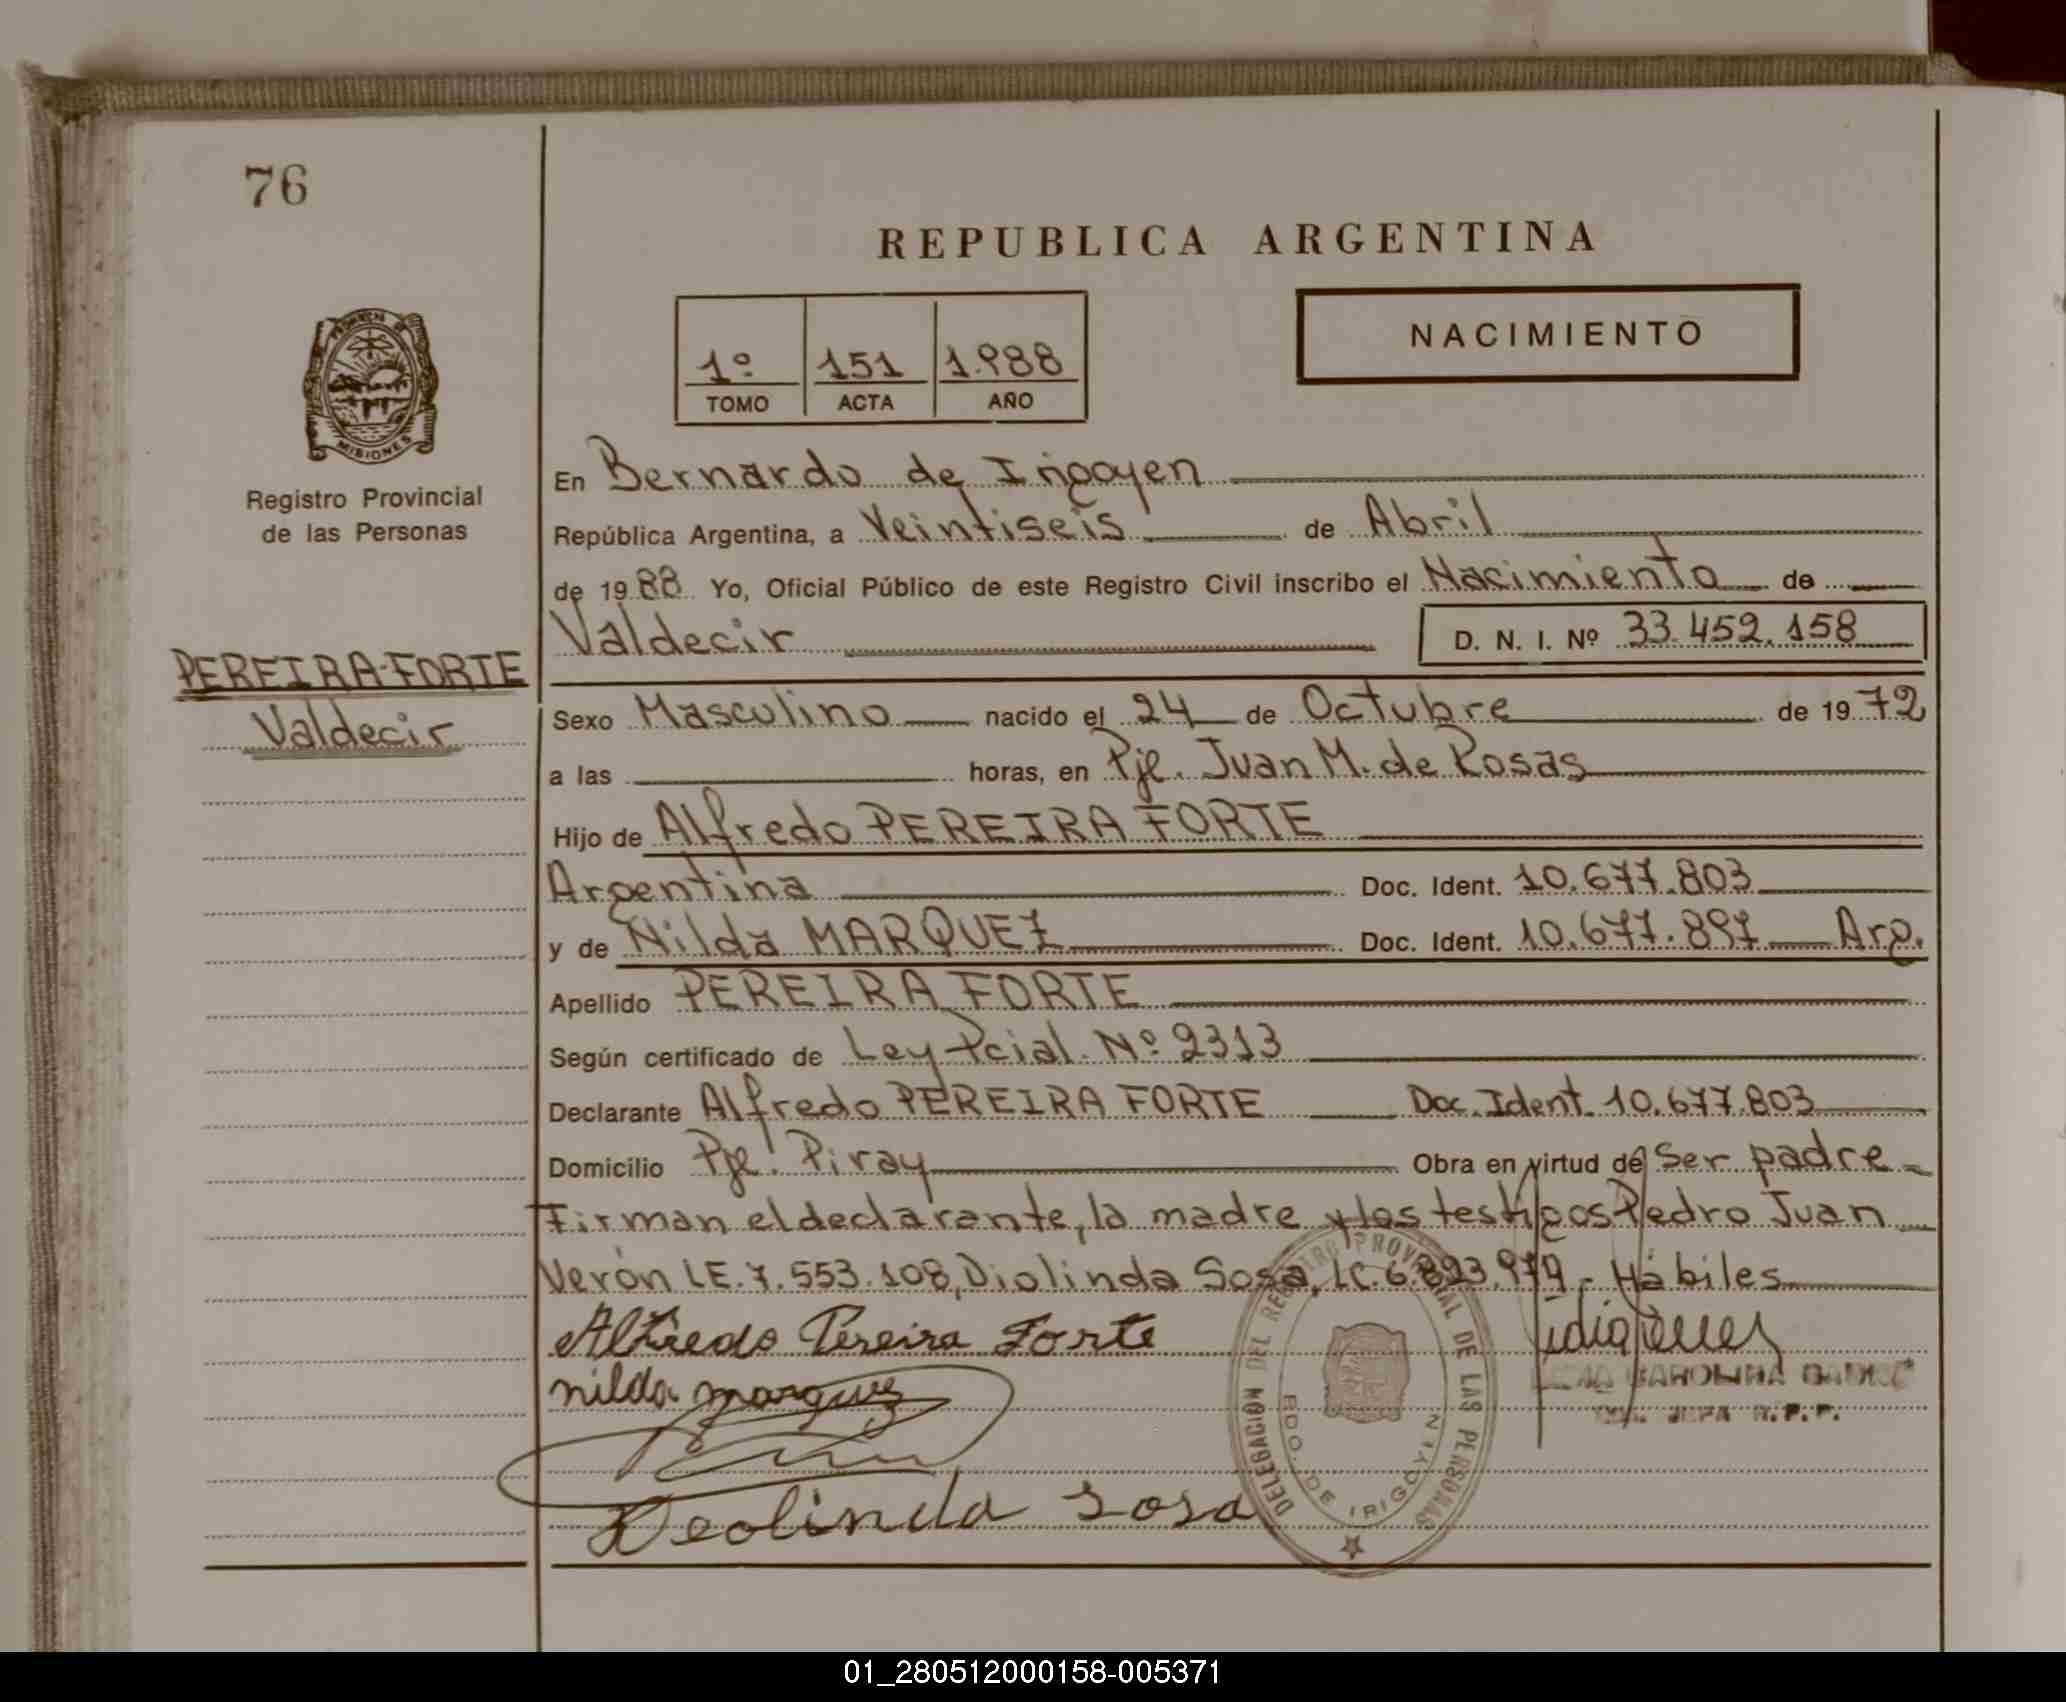 76
REPUBLICA ARGENTINA
NACIMIENTO
1º 151 1.988
TOMO ACTA AÑO
PROVINCIA DE
MISIONES
Registro Provincial
de las Personas
PEREIRA-FORTE
Valdecir
En Bernardo de Irigoyen
República Argentina, a Veintiseis de Abril
de 1988 Yo, Oficial Público de este Registro Civil inscribo el Nacimiento de
Valdecir D. N. I. Nº 33.452.158
Sexo Masculino nacido el 24 de Octubre de 1972
a las horas, en Pje. Juan M. de Rosas
Hijo de Alfredo PEREIRA FORTE
Argentina Doc. Ident. 10.677.803
y de Nilda MARQUEZ Doc. Ident. 10.677.897 Arg.
Apellido PEREIRA FORTE
Según certificado de Ley Pcial. Nº 2313
Declarante Alfredo PEREIRA FORTE Doc. Ident. 10.677.803
Domicilio Pje. Piray Obra en virtud de Ser padre
Firman el declarante, la madre y los testigos Pedro Juan
Verón L.E. 7.553.108, Diolinda Sosa, L.C. 6.823.979 - Hábiles
Alfredo Pereira Forte
nilda marquez
Deolinda Sosa
DELEGACION DEL REGISTRO PROVINCIAL DE LAS PERSONAS
BDO. DE IRIGOYEN
CAROLINA
JEFA R.P.P.
01_280512000158-005371